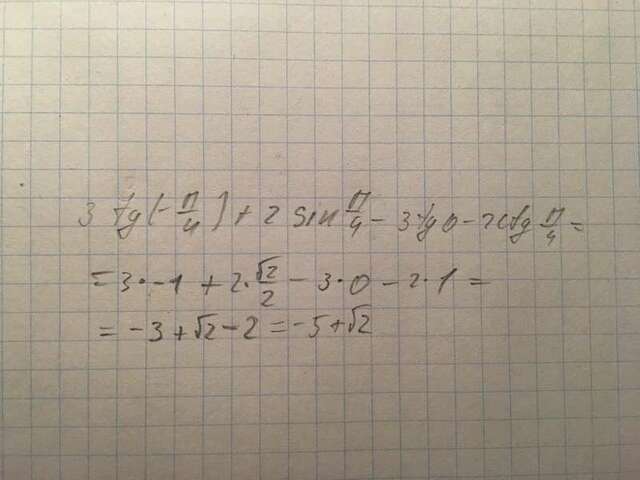 3 tg(-π/4) + 2 sin π/4 - 3 tg 0 - 2ctg π/4 =
= 3 · -1 + 2 · √2/2 - 3 · 0 - 2 · 1 =
= -3 + √2 - 2 = -5 + √2